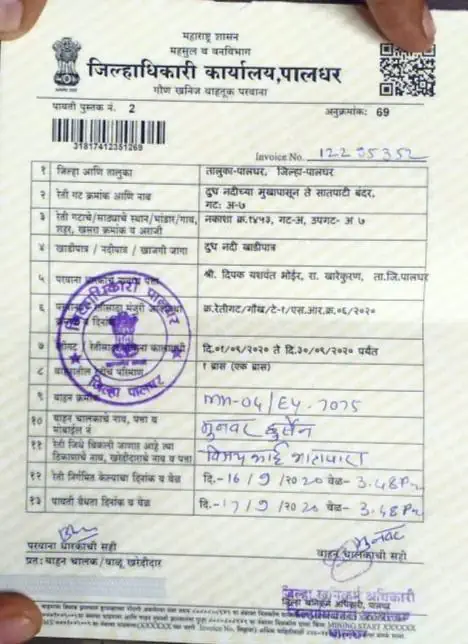 महाराष्ट्र शासन
महसुल व वनविभाग
जिल्हाधिकारी कार्यालय,पालघर
गौण खनिज वाहतूक परवाना
पावती पुस्तक नं. 2
अनुक्रमांक: 69
31817412351269
Invoice No. 12235352
१ जिल्हा आणि तालुका तालुका-पालघर, जिल्हा-पालघर
२ रेती गट क्रमांक आणि नाव दुध नदीच्या मुखापासून ते सातपाटी बंदर, गट: अ-७
३ रेती गटाचे/साठ्याचे स्थान/भांडार/गाव, शहर, खसरा क्रमांक व अराजी नकाशा क्र.१४५३, गट-अ, उपगट- अ ७
४ खाडीपात्र / नदीपात्र / खाजगी जागा दुध नदी खाडीपात्र
५ परवाना श्री. दिपक यशवंत भोईर, रा. खारेकुरण, ता.जि.पालघर
६ क्र.रेतीगट/गौख/टे-१/एस.आर.क्र.०६/२०२०
७ दि.०१/०९/२०२० ते दि.३०/०९/२०२० पर्यंत
८ परिमाण १ ब्रास (एक ब्रास)
९ वाहन क्रमांक MH-04/EY-7075
१० वाहन चालकाचे नाव, पत्ता व मोबाईल नं मुनवर हुसेन
११ रेती जिथे विकली जाणार आहे त्या ठिकाणाचे नाव, खरेदीदाराचे नाव व पत्ता
१२ रेती निर्गमित केल्याचा दिनांक व वेळ दि.-16/9/2020 वेळ- 3.48 PM
१३ पावती वैधता दिनांक व वेळ दि.-17/9/2020 वेळ- 3.48 PM
मुनवर
परवाना धारकाची सही
वाहन चालकाची सही
प्रत: वाहन चालक/वाळू खरेदीदार
जिल्हा खनिकर्म अधिकारी
जिल्हा खनिकर्म अधिकारी, पालघर
पालघर
जिल्हाधिकारी पालघर
जिल्हा पालघर